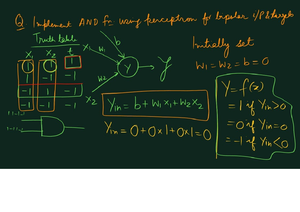 Q Implement AND fx using perceptron for bipolar i/p & target
Truth table
x1 x2 t
1 1 1
1 -1 -1
-1 1 -1
-1 -1 -1
x1
w1
b
Y
y
w2
x2
Initially set
w1 = w2 = b = 0
Yin = b + w1x1 + w2x2
Yin = 0 + 0x1 + 0x1 = 0
Y = f(x)
= 1 if Yin > 0
= 0 if Yin = 0
= -1 if Yin < 0